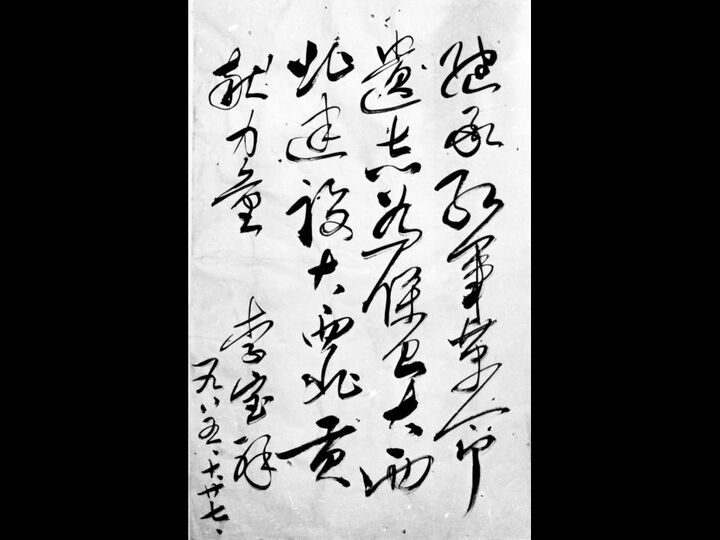 继承红军革命
遗志为保卫大西
北建设大西北贡
献力量
李宝祥
一九八五、十、廿七、